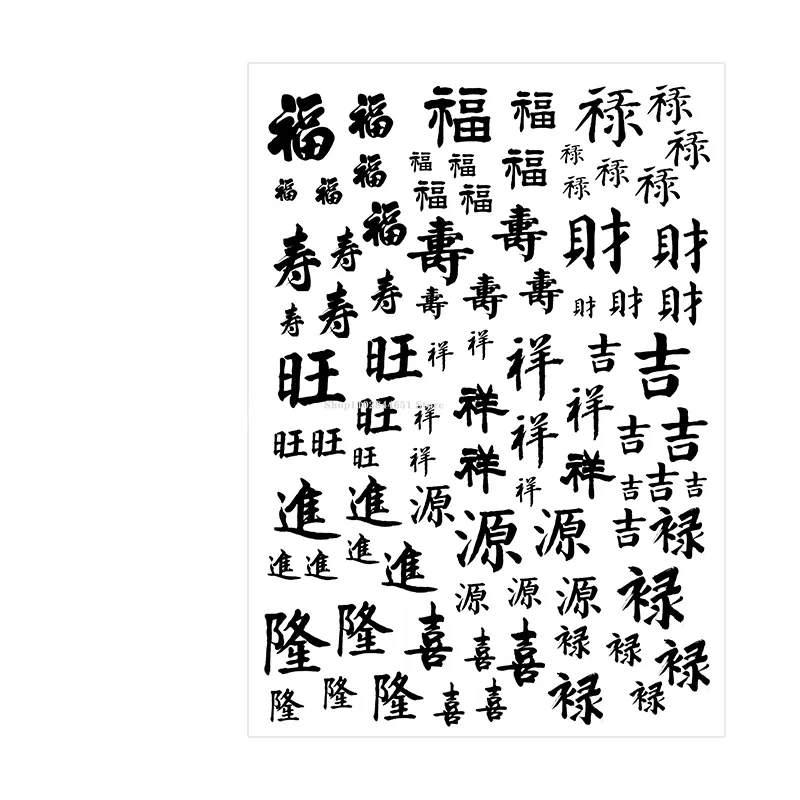 福 福 福 福 禄 禄
福 福 福 福 禄 禄 禄
福 福 福 福 禄 禄
福
寿 寿 壽 壽 財 財
寿 寿 寿 壽 壽 壽 財 財 財
旺 旺 祥 祥 祥 吉 吉
旺 祥 祥 祥
Store
旺 旺 旺 祥 祥 吉 吉
祥 祥 祥 吉 吉 吉
進 進 源 源 源 吉 禄
進 進 進 進
源 源 源 禄
隆 隆 喜 喜 喜 禄 禄 禄
隆 隆 隆 喜 喜 禄 禄